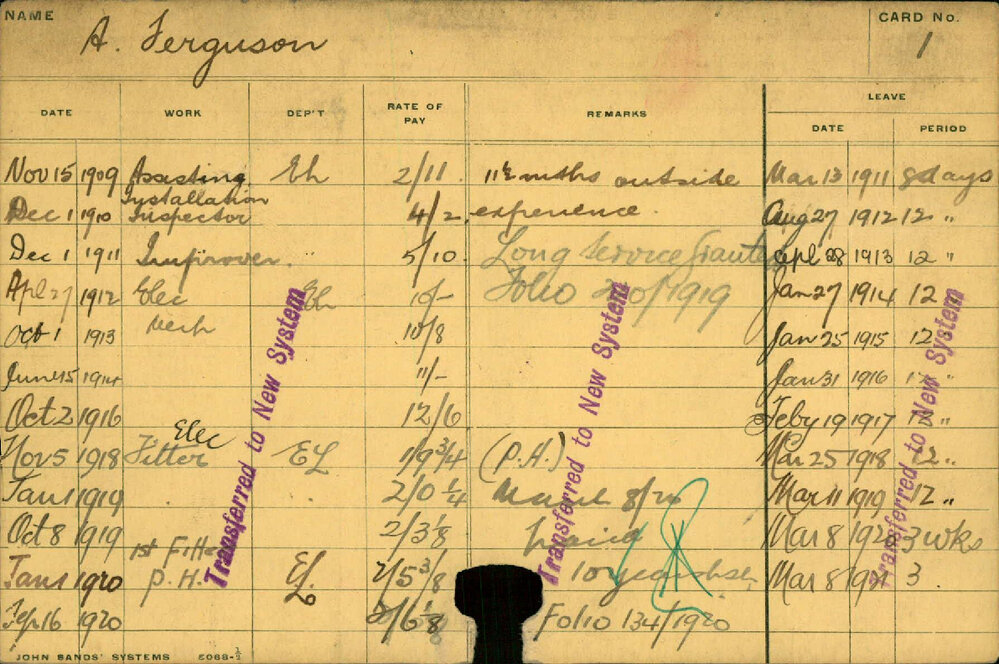 NAME
A. Ferguson
CARD No.
1
DATE WORK DEP'T RATE OF PAY REMARKS LEAVE
DATE PERIOD
Nov 15 1909 Assisting Eh 2/11 11½ mths outside Mar 13 1911 8 days
Installation
Dec 1 1910 Inspector 4/2 experience. Aug 27 1912 12 "
Dec 1 1911 Improver. " 5/10. Long Service Granted Apl 28 1913 12 "
Apl 27 1912 Elec Eh 10/- Folio /1919 Jan 27 1914 12 "
Oct 1 1913 Mech 10/8 Jan 25 1915 12 "
June 15 1914 11/- Jan 31 1916 "
Oct 2 1916 12/6 Feby 19 1917 "
Elec
Nov 5 1918 Fitter EL 1/9¾ (P.H.) Mar 25 1918 12 "
Jan 1 1919 . . 2/0¼ 8/20 Mar 11 1919 12 "
Oct 8 1919 2/3⅛ Mar 8 1920 3 wks
1st F.
Jan 1 1920 P.H. EL. 2/5⅜ 10 Mar 8 1921 3.
Sep 16 1920 2/6⅛ Folio 134/1920
Transferred to New System
Transferred to New System
Transferred to New System
JOHN SANDS' SYSTEMS 6068-½